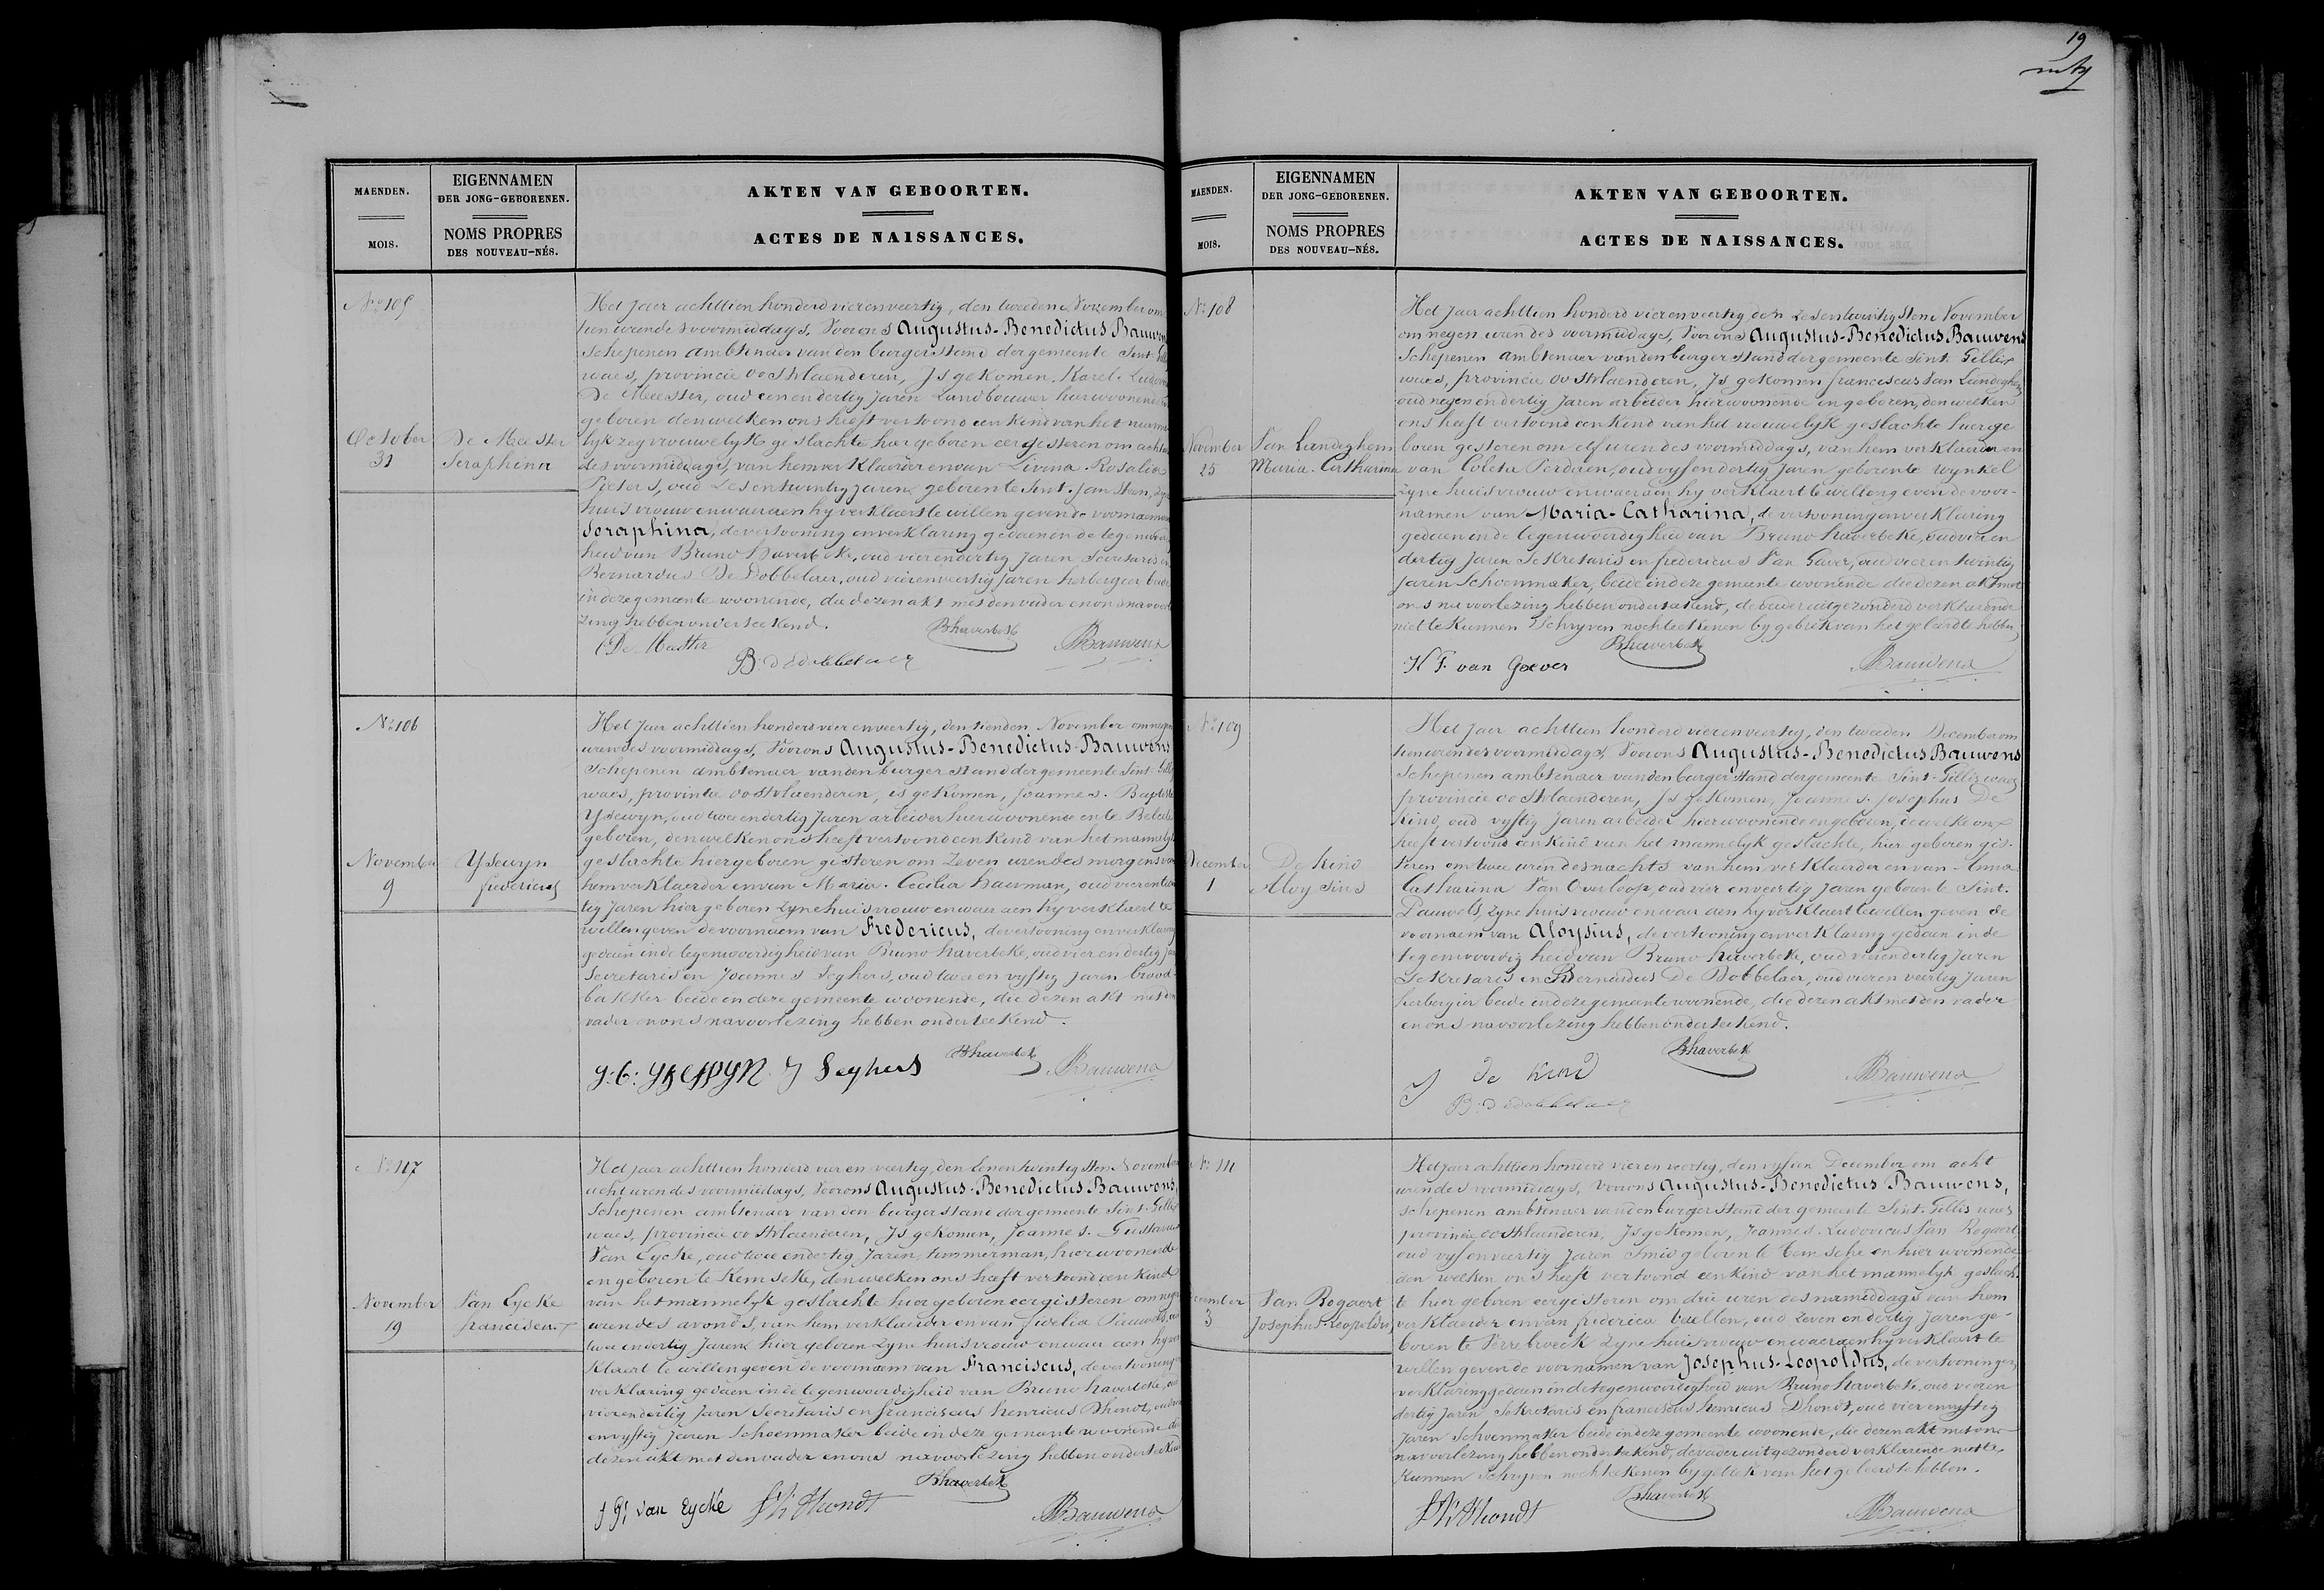 19
MAENDEN.
MOIS.
EIGENNAMEN
DER JONG-GEBORENEN.
NOMS PROPRES
DES NOUVEAU-NÉS.
AKTEN VAN GEBOORTEN.
ACTES DE NAISSANCES.
No 105
October
31
De Meester
Seraphina
Het jaer achttien honderd vierenveertig, den tweeden November om
tien uren des voormiddags, Voor ons Augustus-Benedictus Bauwens
Schepenen ambtenaer van den burgerstand der gemeente Sint-Gillis
waes, provincie oostvlaenderen, Is gekomen, Karel-Ludovi
De Meester, oud een en dertig jaren Landbouwer hier woonende en
geboren denwelken ons heeft vertoond een kind van het manne
lyk zeg vrouwelyk geslachte hier geboren eergisteren om acht u
des voormiddags, van hem verklaerder en van Livina-Rosalia
Pieters, oud zesentwintig jaren geboren te Sint-jan Steen, zyne
huisvrouw en waeraen hy verklaert te willen geven de voornaemen
Seraphina, de vertooning en verklaring gedaen in de tegenwoordig
heid van Bruno Haverbeke, oud vierendertig jaren Secretaris en
Bernardus De Dobbelaer, oud vierenveertig jaren herbergier beide
in deze gemeente woonende, die dezen akt met den vader en ons na voorle
zing hebben onderteekend.
C De Meester
Bhaverbeke
B: d dobbelaer
ABBauwens
No 106
November
9
Ysewyn
fredericus
Het jaer achttien honderd vier enveertig, den tienden November om negen
uren des voormiddags, Voor ons Augustus-Benedictus-Bauwens
Schepenen ambtenaer van den burgerstand der gemeente Sint-Gillis
waes, provintie oostvlaenderen, is gekomen, joannes-Baptiste
Ysewyn, oud twee en dertig jaren arbeider hier woonende en te Belcele
geboren, denwelken ons heeft vertoond een kind van het mannelyk
geslachte hier geboren gisteren om zeven uren des morgens van
hem verklaerder en van Maria-Cecilia haerman, oud vier en twin
tig jaren hier geboren zyne huisvrouw en waer aen hy verklaert te
willen geven de voornaem van Fredericus, de vertooning en verklaring
gedaen in de tegenwoordigheid van Bruno haverbeke, oud vier en dertig jaren
Secretaris en Joannes Seghers, oud twee en vyftig jaren brood-
bakker beide in deze gemeente woonende, die dezen akt met den
vader en ons na voorlezing hebben onderteekend.
y: b: ysewyn
J Seghers
Bhaverbeke
ABBauwens
No 117
November
19
Van Eycke
franciscus
Het jaer achttien honderd vier en veertig, den eenentwintigsten November
acht uren des voormiddags, Voor ons Augustus-Benedictus Bauwens,
Schepenen ambtenaer van den burgerstand der gemeente Sint-Gillis
waes, provincie oostvlaenderen, Is gekomen, joannes-Gustavus
Van Eycke, oud twee en dertig jaren, timmerman, hier woonende
en geboren te Kemseke, denwelken ons heeft vertoond een kind
van het mannelyk geslachte hier geboren eergisteren om negen
uren des avonds, van hem verklaerder en van fidelia Pauwels, oud
twee en dertig jaren hier geboren zyne huisvrouw en waer aen hy ver
klaert te willen geven de voornaem van Franciscus, de vertooning en
verklaring gedaen in de tegenwoordigheid van Bruno haverbeke, oud
vierendertig jaren Secretaris en franciscus henricus Dhondt, oud vier
envyftig jaren Schoenmaker beide in deze gemeente woonende die
dezen akt met den vader en ons na voorlezing hebben onderteekend
J G: van Eycke
F H Dhondt
Bhaverbeke
ABBauwens
MAENDEN.
MOIS.
EIGENNAMEN
DER JONG-GEBORENEN.
NOMS PROPRES
DES NOUVEAU-NÉS.
AKTEN VAN GEBOORTEN.
ACTES DE NAISSANCES.
No 108
November
25
Van Landeghem
Maria-Catharina
Het jaer achttien honderd vierenveertig den zesentwintigsten November
om negen uren des voormiddags, Voor ons Augustus-Benedictus Bauwens
Schepenen ambtenaer van den burgerstand der gemeente Sint Gillis
waes, provincie oostvlaenderen, Is gekomen franciscus Van Landeghem
oud negen en dertig jaren arbeider hier woonende en geboren, denwelken
ons heeft vertoond een kind van het vrouwelyk geslachte hier ge
boren gisteren om elf uren des voormiddags, van hem verklaerder en
van Coleta Verdoren, oud vyf en dertig jaren geboren te wynkel
zyne huisvrouw en waeraen hy verklaert te willen geven de voor-
namen van Maria-Catharina, de vertooning en verklaring
gedaen in de tegenwoordigheid van Bruno haverbeke, oud vier en
dertig jaren Sekretaris en fredericus Van Gaver, oud vier en twintig
jaren Schoenmaker, beide in deze gemeente woonende die dezen akt met
ons na voorlezing hebben onderteekend, de vader uitgezonderd verklarende
niet te kunnen schryven noch teekenen by gebrek van het geleerd te hebben
H F. van Gaever
Bhaverbeke
ABBauwens
No 109
December
1
De Kind
Aloysius
Het jaer achttien honderd vierenveertig, den tweeden December om
tien uren des voormiddags, Voor ons Augustus-Benedictus Bauwens
Schepenen ambtenaer van den burgerstand der gemeente Sint-Gillis waes
provincie oostvlaenderen, Is gekomen, Joannes-josephus De
Kind, oud vyftig jaren arbeider hier woonende en geboren, dewelke ons
heeft vertoond een kind van het mannelyk geslachte, hier geboren gis-
teren om twee uren des nachts van hem verklaerder en van Anna
Catharina Van Overloop, oud vier enveertig jaren geboren te Sint-
Pauwels, zyne huisvrouw en waer aen hy verklaert te willen geven de
voornaem van Aloysius, de vertooning en verklaring gedaen in de
tegenwoordigheid van Bruno haverbeke, oud vierendertig jaren
Sekretaris en Bernardus De Dobbelaer, oud vier en veertig jaren
herbergier beide in deze gemeente woonende, die dezen akt met den vader
en ons na voorlezing hebben onderteekend.
J de Kind
Bhaverbeke
B: d dobbelaer
ABBauwens
No 111
December
3
Van Bogaert
Josephus-Leopoldus
Het jaer achttien honderd vier en veertig, den vyfsen December om acht
uren des voormiddags, Voor ons Augustus-Benedictus Bauwens,
Schepenen ambtenaer van den burgerstand der gemeente Sint-Gillis waes
provincie oostvlaenderen, Is gekomen, Joannes-Ludovicus Van Bogaert
oud vyf en veertig jaren Smid geboren te temsche en hier woonende,
den welken ons heeft vertoond een kind van het mannelyk geslach-
te hier geboren eergisteren om drie uren des namiddags van hem
verklaerder en van frederica baellen, oud zeven en dertig jaren ge-
boren te Verrebroeck zyne huisvrouw en waeraen hy verklaert te
willen geven de voornamen van Josephus-Leopoldus, de vertooning en
verklaring gedaen in de tegenwoordigheid van Bruno haverbeke, oud vier en
dertig jaren Sekretaris en franciscus henricus Dhondt, oud vier en vyftig
jaren Schoenmaker beide in deze gemeente woonende, die dezen akt met ons
na voorlezing hebben onderteekend, de vader uitgezonderd verklarende niet te
kunnen schryven noch teekenen by gebrek van het geleerd te hebben.
F H Dhondt
Bhaverbeke
ABBauwens